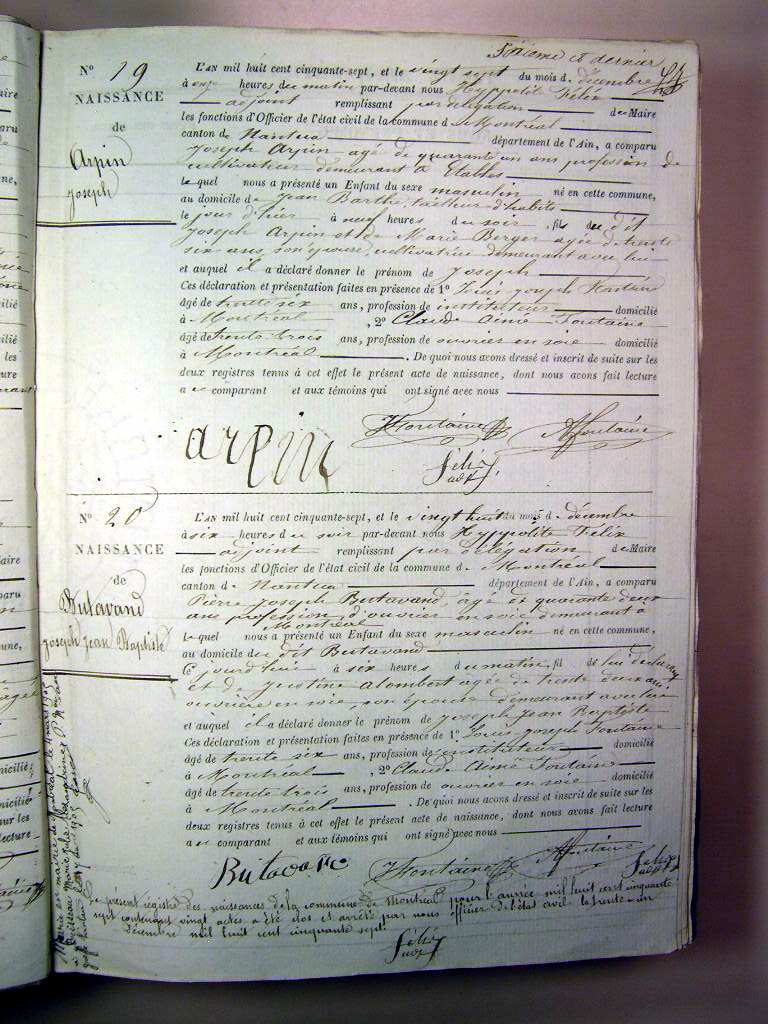 Sixième et dernier
N° 19
NAISSANCE
de
Arpin
Joseph
L'AN mil huit cent cinquante-sept, et le vingt sept du mois d décembre
à onze heures du matin par-devant nous Hyppolite Félix
adjoint remplissant par délégation de Maire
les fonctions d'Officier de l'état civil de la commune d Montréal
canton de Nantua département de l'Ain, a comparu
Joseph Arpin agé de quarante un ans profession de
cultivateur demeurant à Etables
lequel nous a présenté un Enfant du sexe masculin né en cette commune,
au domicile de Jean Barthe, tailleur d'habits
le jour d'hier à neuf heures du soir, fil de dit
Joseph Arpin et de Marie Berger agée de trente
six ans, son épouse, cultivatrice demeurant avec lui
et auquel il a déclaré donner le prénom de Joseph
Ces déclaration et présentation faites en présence de 1° Louis Joseph Fontaine
âgé de trente six ans, profession de instituteur domicilié
à Montréal , 2° Claude Aimé Fontaine
âgé de trente trois ans, profession de ouvrier en soie domicilié
à Montréal . De quoi nous avons dressé et inscrit de suite sur les
deux registres tenus à cet effet le présent acte de naissance, dont nous avons fait lecture
a u comparant et aux témoins qui ont signé avec nous
arpin
Fontaine
Fontaine
Félix
adjt
N° 20
NAISSANCE
de
Butavand
Joseph Jean Baptiste
L'AN mil huit cent cinquante-sept, et le vingt huit du mois d décembre
à six heures du soir par-devant nous Hyppolite Félix
adjoint remplissant par délégation de Maire
les fonctions d'Officier de l'état civil de la commune d Montréal
canton de Nantua département de l'Ain, a comparu
Pierre Joseph Butavand, agé de quarante deux
ans profession d'ouvrier en soie demeurant à
Montréal
lequel nous a présenté un Enfant du sexe masculin né en cette commune,
au domicile du dit Butavand
le jourd'hui à six heures du matin, fil de lui déclarant
et de Justine Alombert agée de trente deux ans
ouvrière en soie, son épouse demeurant avec lui
et auquel il a déclaré donner le prénom de Joseph Jean Baptiste
Ces déclaration et présentation faites en présence de 1° Louis Joseph Fontaine
âgé de trente six ans, profession de instituteur domicilié
à Montréal , 2° Claude Aimé Fontaine
âgé de trente trois ans, profession de ouvrier en soie domicilié
à Montréal . De quoi nous avons dressé et inscrit de suite sur les
deux registres tenus à cet effet le présent acte de naissance, dont nous avons fait lecture
a u comparant et aux témoins qui ont signé avec nous
Butavand
Fontaine
Fontaine
Félix
adjt
Le présent registre des naissances de la commune de Montréal pour l'année mil huit cent cinquante
sept contenant vingt actes a été clos et arrêté par nous officier de l'état civil le trente un
décembre mil huit cent cinquante sept
Félix
adjt
Marié en mairie de Montréal le 4 mars 1905